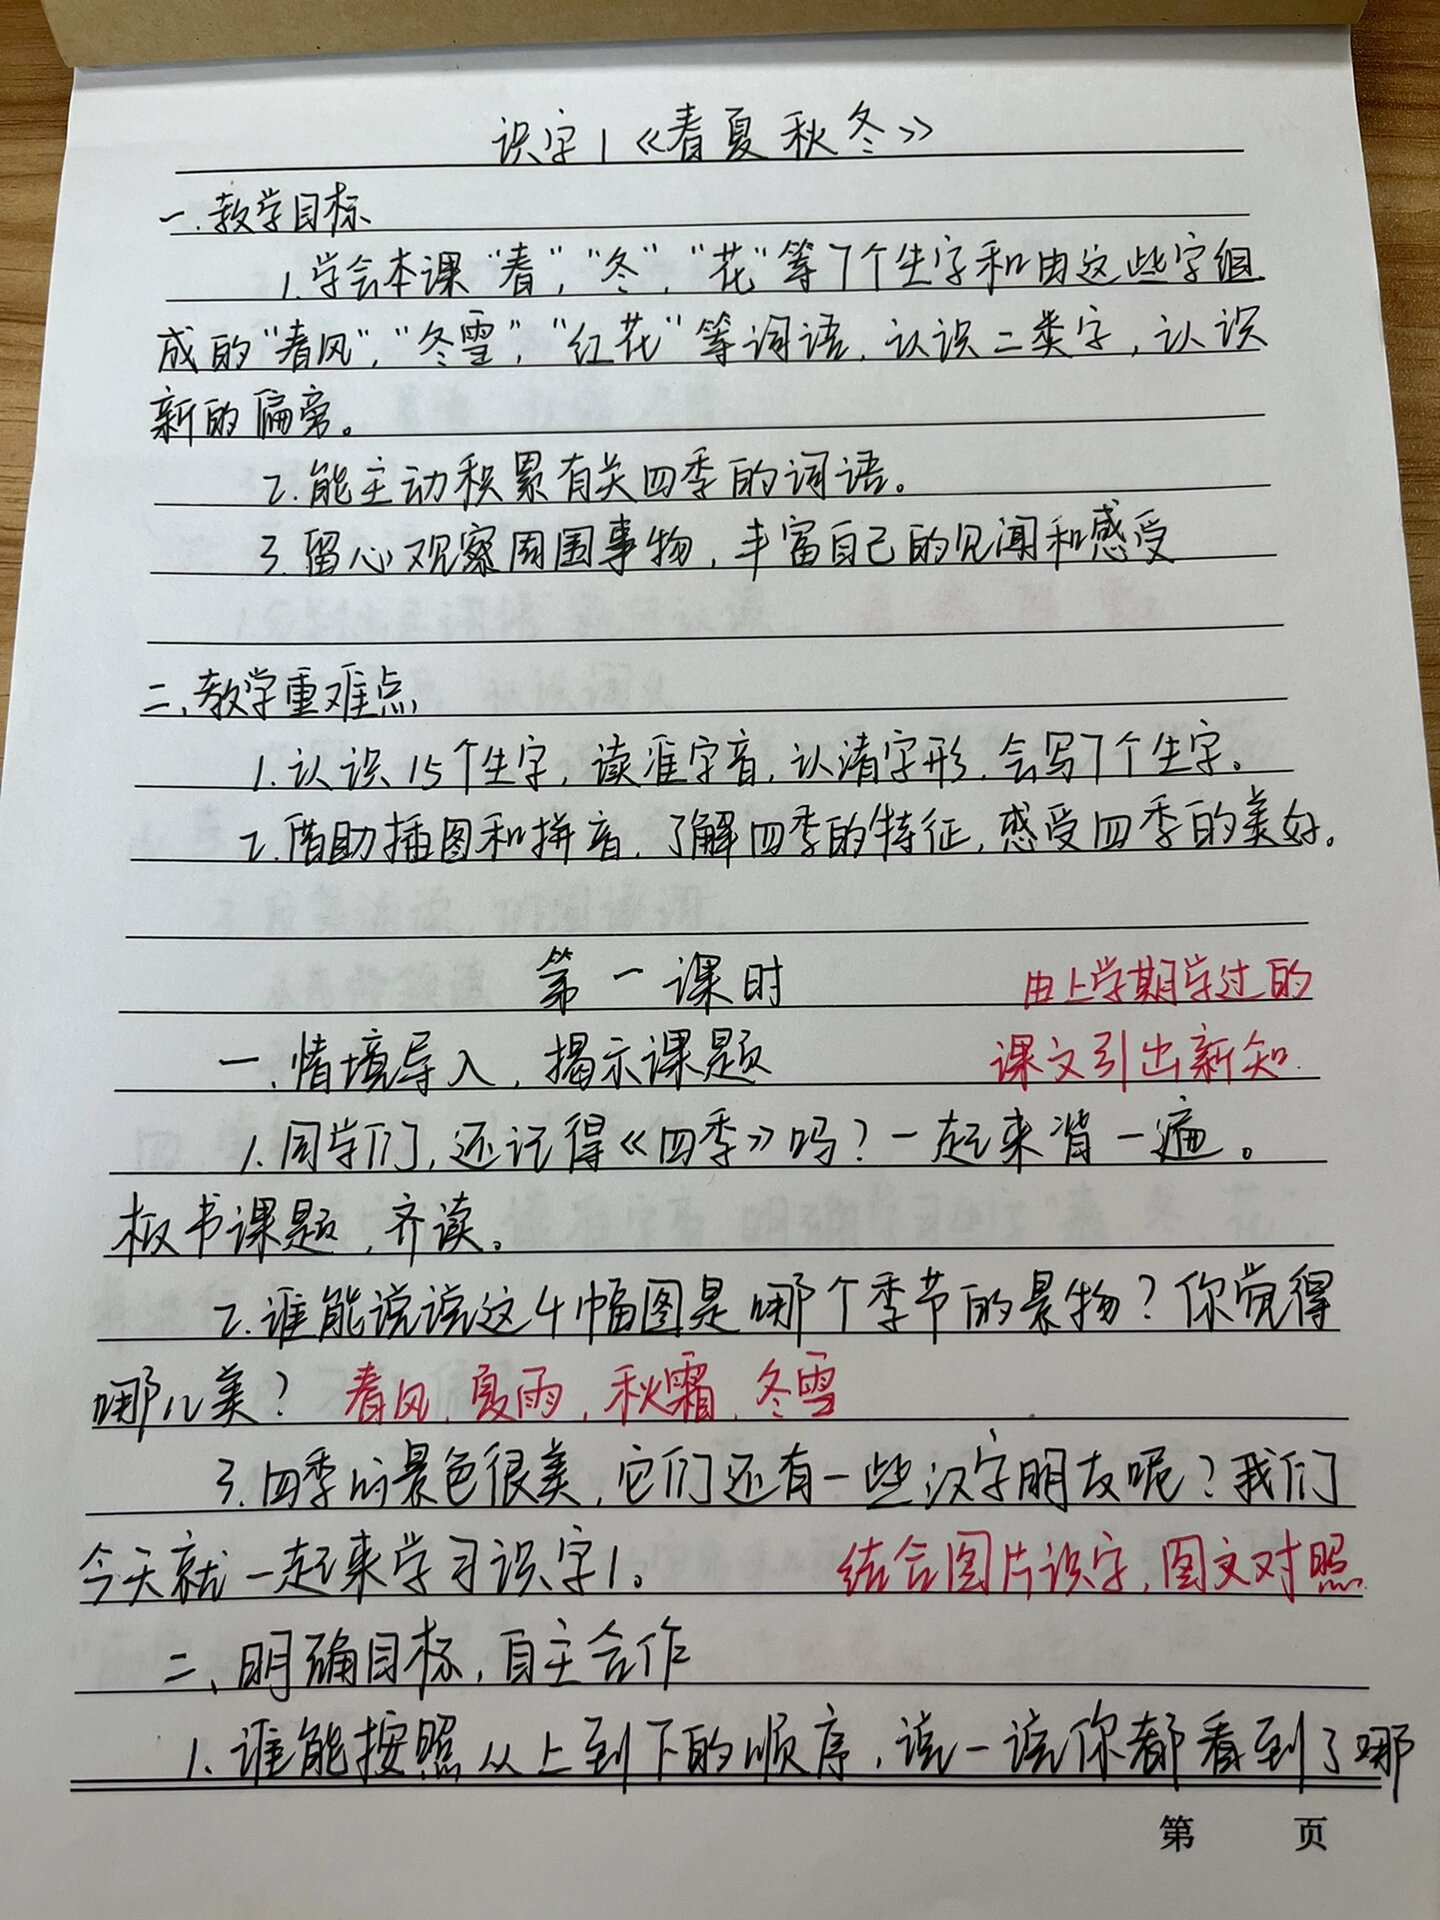 识字1《春夏秋冬》
一.教学目标
1.学会本课“春”,“冬”,“花”等7个生字和由这些字组
成的“春风”,“冬雪”,“红花”等词语,认识二类字,认识
新的偏旁。
2.能主动积累有关四季的词语。
3.留心观察周围事物,丰富自己的见闻和感受
二、教学重难点
1.认识15个生字,读准字音,认清字形,会写7个生字。
2.借助插图和拼音,了解四季的特征,感受四季的美好。
第一课时 由上学期学过的
一、情境导入,揭示课题 课文引出新知.
1.同学们,还记得《四季》吗?一起来背一遍。
板书课题,齐读。
2.谁能说说这4幅图是哪个季节的景物?你觉得
哪儿美? 春风,夏雨,秋霜,冬雪
3.四季的景色很美,它们还有一些汉字朋友呢?我们
今天就一起来学习识字1。 结合图片识字,图文对照.
二、明确目标,自主合作
1.谁能按照从上到下的顺序,说一说你都看到了哪
第 页